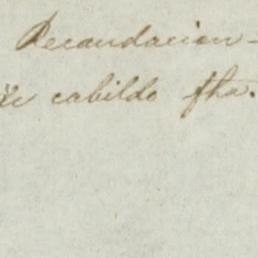 Recaudacion-
de cabildo fha.